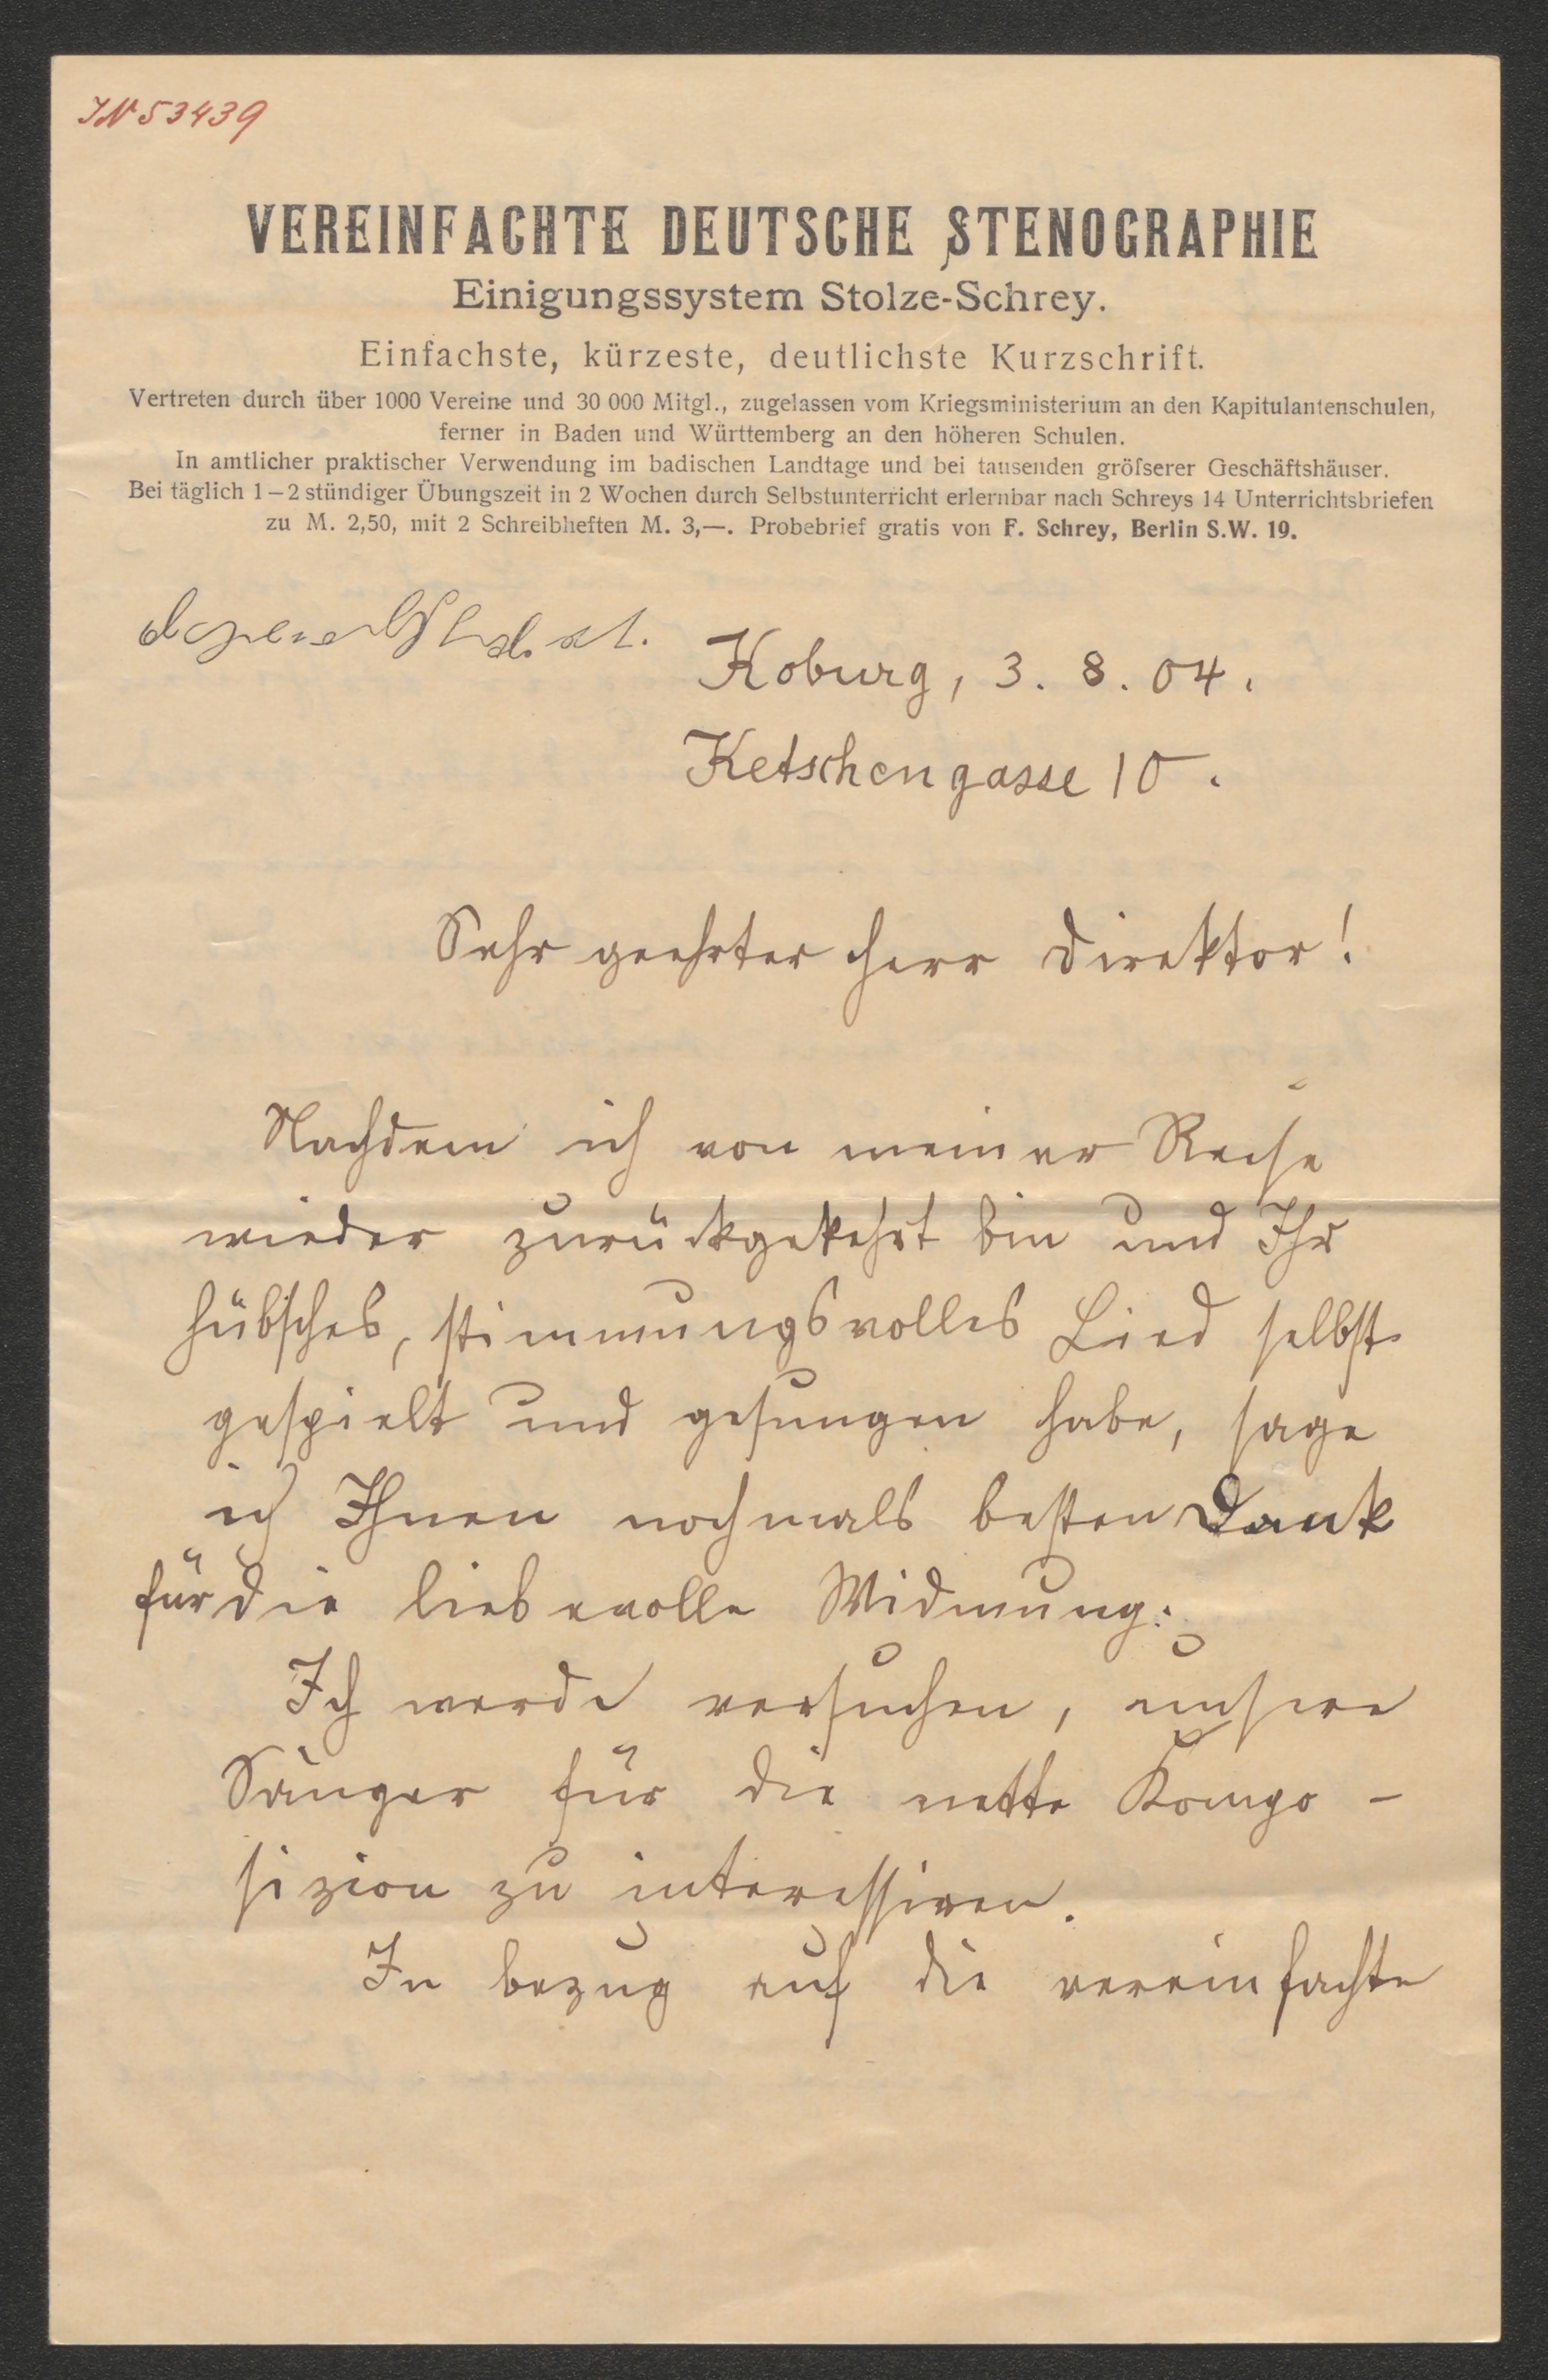 IN 53439
VEREINFACHTE DEUTSCHE STENOGRAPHIE
Einigungssystem Stolze-Schrey.
Einfachste, kürzeste, deutlichste Kurzschrift.
Vertreten durch über 1000 Vereine und 30 000 Mitgl., zugelassen vom Kriegsministerium an den Kapitulantenschulen,
ferner in Baden und Württemberg an den höheren Schulen.
In amtlicher praktischer Verwendung im badischen Landtage und bei tausenden gröfserer Geschäftshäuser.
Bei täglich 1–2 stündiger Übungszeit in 2 Wochen durch Selbstunterricht erlernbar nach Schreys 14 Unterrichtsbriefen
zu M. 2,50, mit 2 Schreibheften M. 3,—. Probebrief gratis von F. Schrey, Berlin S.W. 19.
Koburg, 3. 8. 04.
Ketschengasse 10.
Sehr geehrter Herr Direktor!
Nachdem ich von meiner Reise
wieder zurückgekehrt bin und Ihr
hübsches, stimmungsvolles Lied selbst
gespielt und gesungen habe, sage
ich Ihnen nochmals besten Dank
für die liebevolle Widmung.
Ich werde versuchen, unsere
Sänger für die nette Kompo-
sizion zu interessiren.
In bezug auf die vereinfachte